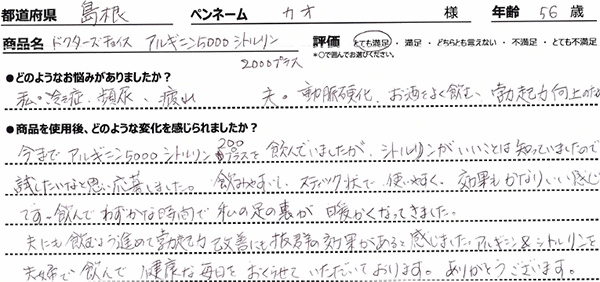 都道府県 島根 ペンネーム カオ 様 年齢 56歳
商品名 ドクターズチョイス アルギニン5000シトルリン 2000プラス
評価 とても満足・満足・どちらとも言えない・不満足・とても不満足
*○で囲んでお選びください。
●どのようなお悩みがありましたか？
私。冷え症、頻尿、疲れ 夫。動脈硬化、お酒をよく飲む、勃起力向上のため
●商品を使用後、どのような変化を感じられましたか？
今まで アルギニン5000 シトルリン200プラスを 飲んでいましたが、シトルリンがいいことは知っていましたので
試したいなと思い応募しました。 飲みやすいし、スティック状で 使いやすく、効果もかなりいい感じ
です。飲んで わずかな時間で 私の足の裏が 暖かくなってきました。
夫にも飲むよう進めて勃起力 改善にも抜群の効果があると感じました。アルギニン&シトルリンを
夫婦で 飲んで 健康な毎日を おくらせて いただいております。ありがとうございます。